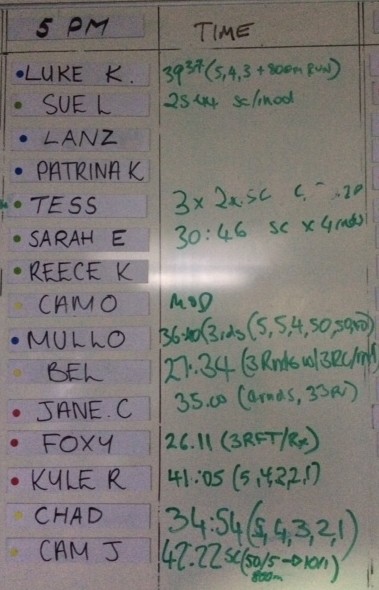 5 PM TIME
LUKE K. 39:37 (5,4,3 + 800m RUN)
SUE L sc/mod
LANZ
PATRINA K
TESS 3x sc
SARAH E 30:46 sc x 4 rnds
REECE K
CAMO MOD
MULLO (3 rds (5,5,4,50,50
BEL 27:34 (3 Rnds w/
JANE.C 35.00
FOXY 26.11 (3RFT/Rx)
KYLE R 41:05
CHAD 34:54 (5,4,3,2,1)
CAM J 42:22 sc (50/5 → 10/1)
800m